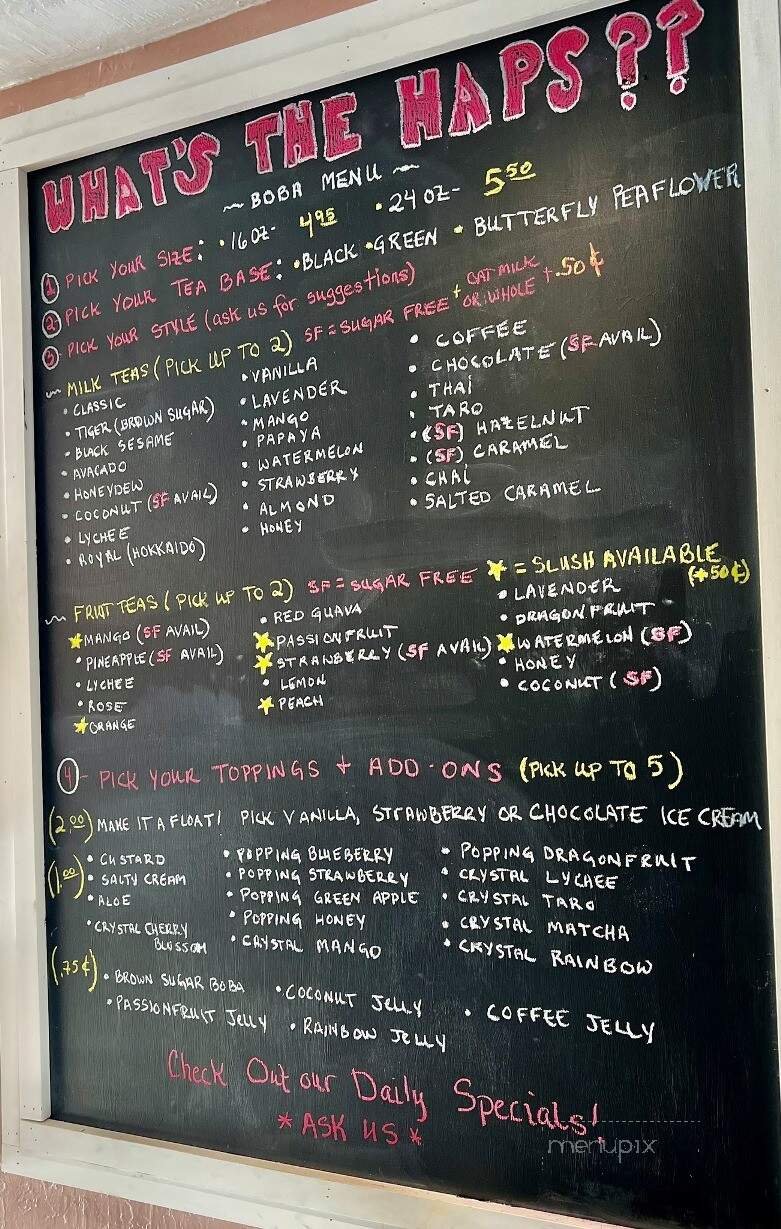 WHAT'S THE HAPS??
~ BOBA MENU ~
① PICK YOUR SIZE: • 16 OZ- 4.95 • 24 OZ- 5.50
② PICK YOUR TEA BASE: • BLACK • GREEN • BUTTERFLY PEAFLOWER
③ PICK YOUR STYLE (ask us for suggestions)
SF = SUGAR FREE + OAT MILK OR WHOLE + .50¢
~ MILK TEAS (PICK UP TO 2)
• CLASSIC
• TIGER (BROWN SUGAR)
• BLACK SESAME
• AVACADO
• HONEYDEW
• COCONUT (SF AVAIL)
• LYCHEE
• ROYAL (HOKKAIDO)
• VANILLA
• LAVENDER
• MANGO
• PAPAYA
• WATERMELON
• STRAWBERRY
• ALMOND
• HONEY
• COFFEE
• CHOCOLATE (SF AVAIL)
• THAI
• TARO
• (SF) HAZELNUT
• (SF) CARAMEL
• CHAI
• SALTED CARAMEL
~ FRUIT TEAS (PICK UP TO 2) SF = SUGAR FREE ★ = SLUSH AVAILABLE
(+50¢)
★ MANGO (SF AVAIL)
• PINEAPPLE (SF AVAIL)
• LYCHEE
• ROSE
★ ORANGE
• RED GUAVA
★ PASSIONFRUIT
★ STRAWBERRY (SF AVAIL)
• LEMON
★ PEACH
• LAVENDER
• DRAGONFRUIT
★ WATERMELON (SF)
• HONEY
• COCONUT (SF)
④ - PICK YOUR TOPPINGS + ADD-ONS (PICK UP TO 5)
(2.00) MAKE IT A FLOAT! PICK VANILLA, STRAWBERRY OR CHOCOLATE ICE CREAM
(1.00)
• CUSTARD
• SALTY CREAM
• ALOE
• CRYSTAL CHERRY
BLOSSOM
• POPPING BLUEBERRY
• POPPING STRAWBERRY
• POPPING GREEN APPLE
• POPPING HONEY
• CRYSTAL MANGO
• POPPING DRAGONFRUIT
• CRYSTAL LYCHEE
• CRYSTAL TARO
• CRYSTAL MATCHA
• CRYSTAL RAINBOW
(.75¢)
• BROWN SUGAR BOBA • COCONUT JELLY • COFFEE JELLY
• PASSIONFRUIT JELLY • RAINBOW JELLY
Check Out our Daily Specials!
* ASK US *
menupix